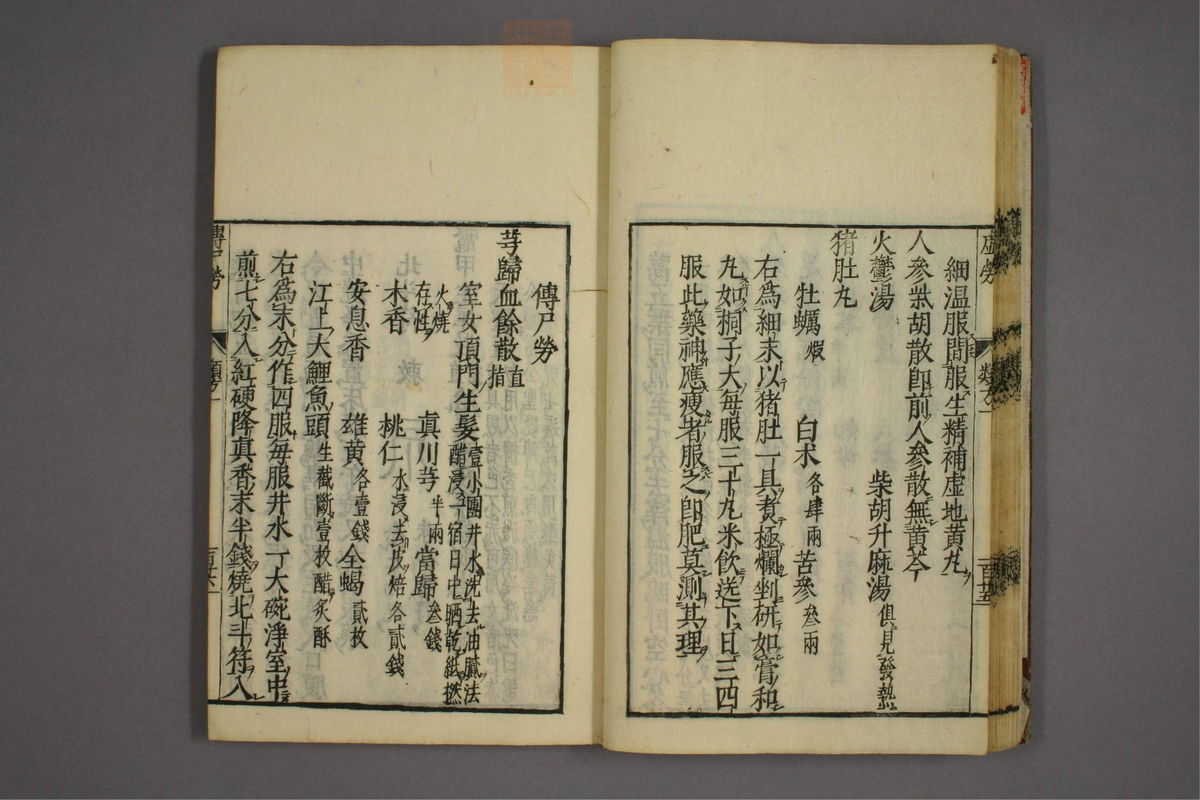 細溫服間服生精補虛地黃丸
人參柴胡散即前人參散無黃芩
火鬱湯　柴胡升麻湯　俱見發熱
猪肚丸
牡蠣　煆　白朮　各肆兩　苦參　叁兩
右爲細末以猪肚一具煮極爛剉研如膏和
丸如桐子大每服三十丸米飲送下日三四
服此藥神應瘦者服之即肥莫測其理
虛勞　類方　百十五
傳尸勞
芎歸血餘散　直指
室女頂門生髮　壹小團井水洗去油膩法
醋浸一宿日中晒乾紙撚
火燒
存性　真川芎　半兩　當歸　叁錢
木香　桃仁　水浸去皮焙各貳錢
安息香　雄黃　各壹錢　全蝎　貳枚
江上大鯉魚頭　生截斷壹枚醋炙酥
右爲末分作四服每服井水一大碗淨室中
煎七分入紅硬降真香末半錢燒北斗符入
傳尸勞　類方　百十六